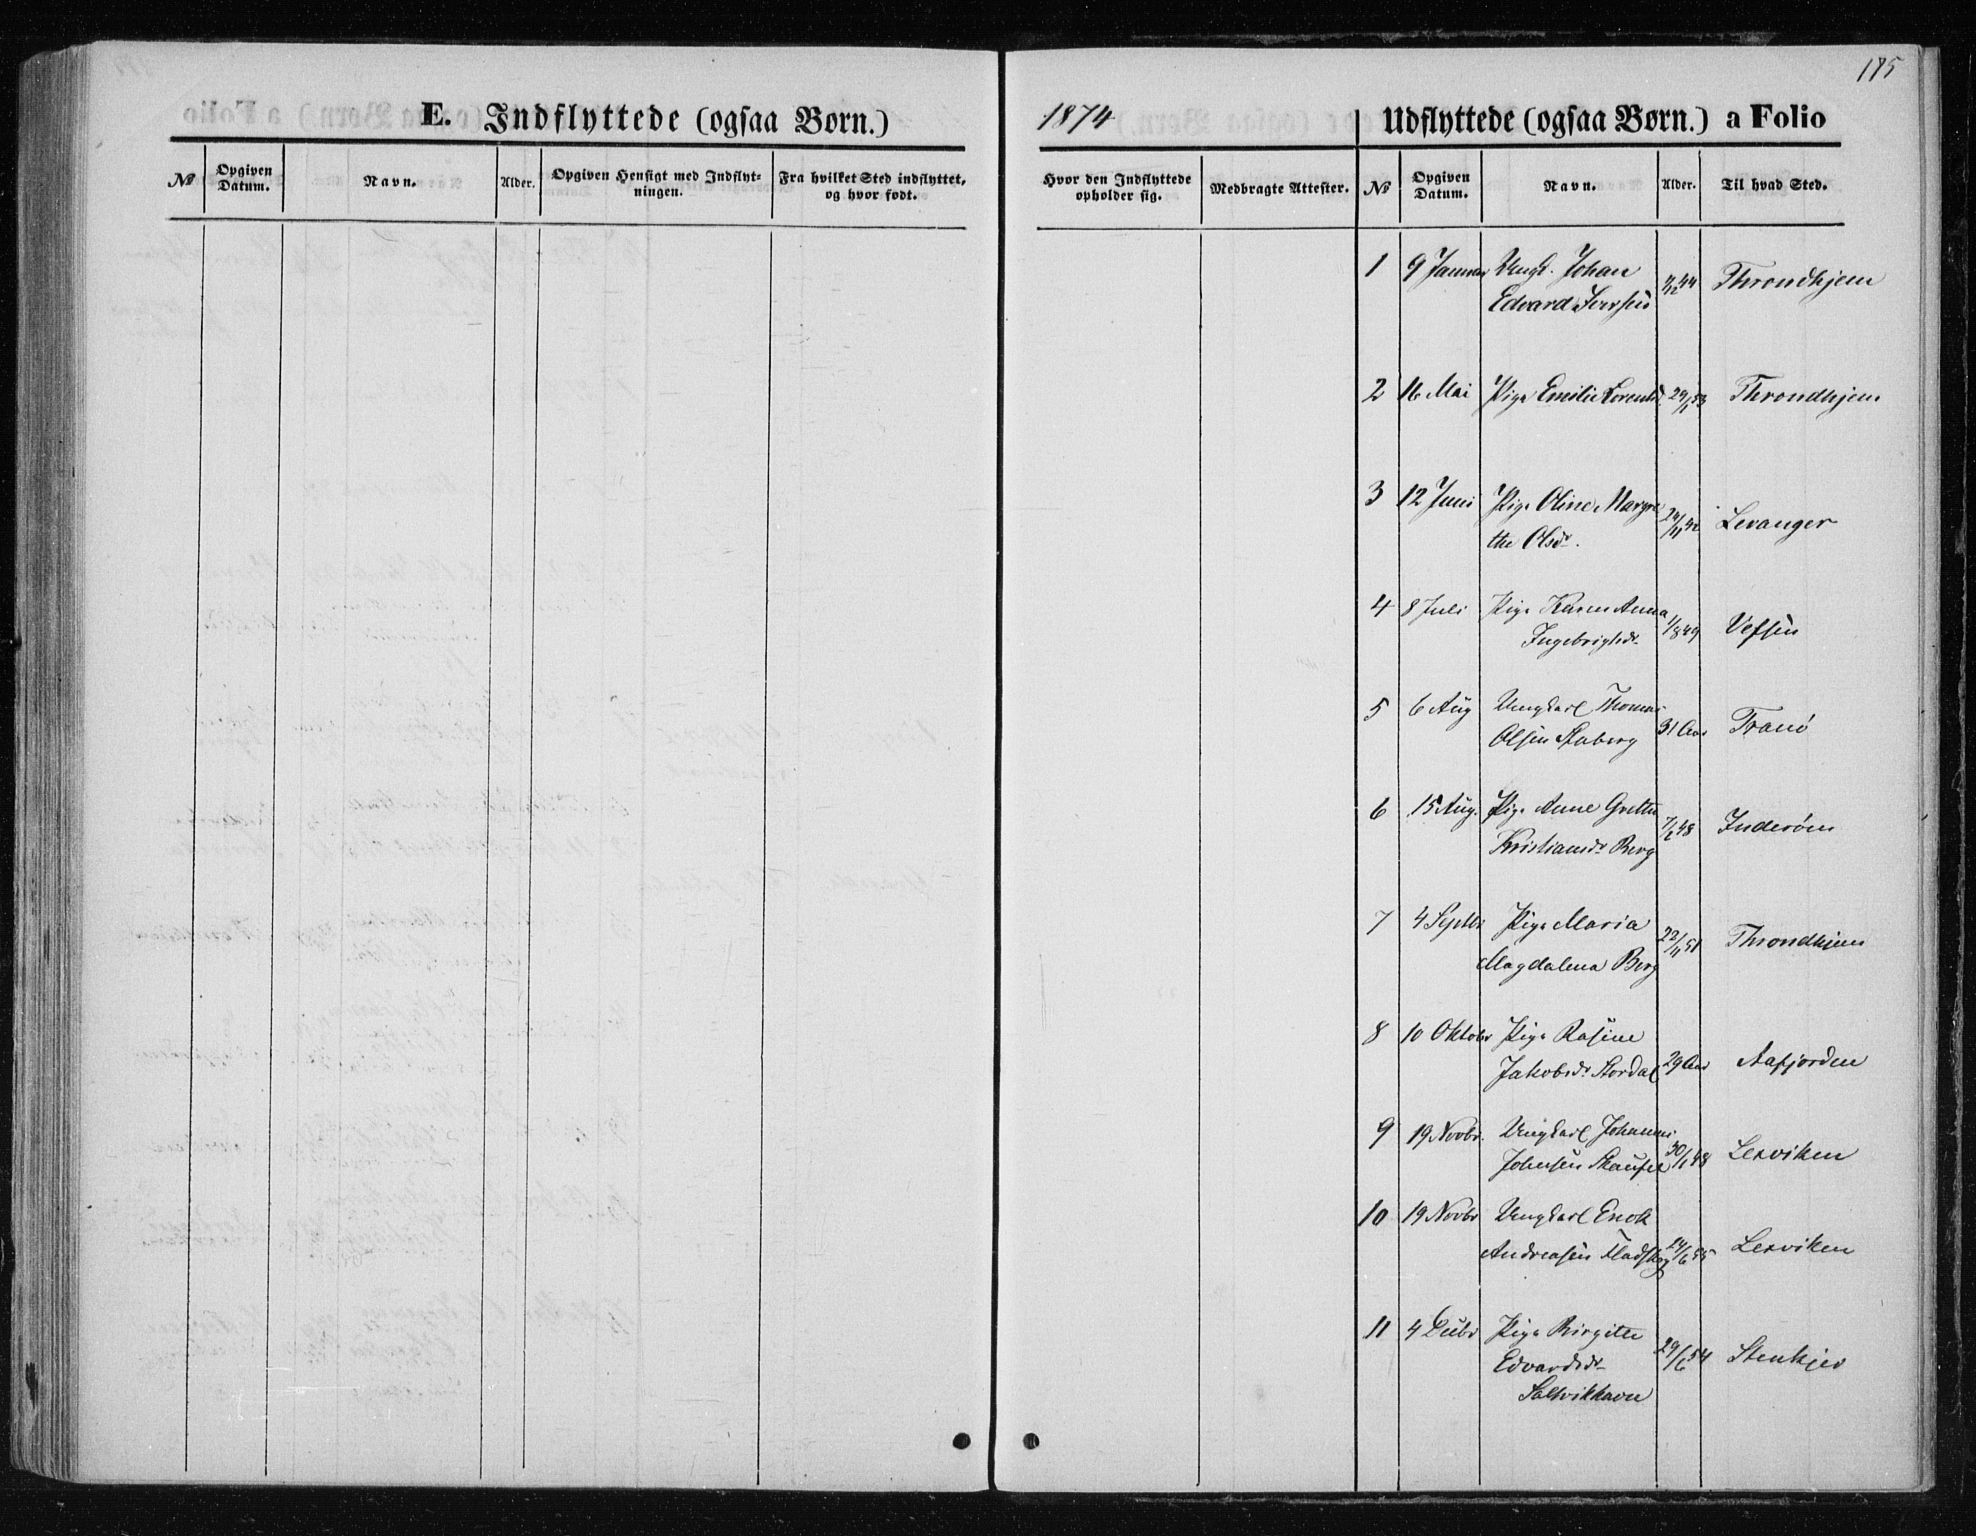 175
E. Indflyttede (ogsaa Børn.)
1874
Udflyttede (ogsaa Børn.) a Folio
No
Opgiven Datum.
Navn.
Alder.
Opgiven Hensigt med Indflytningen.
Fra hvilket Sted indflyttet, og hvor født.
Hvor den Indflyttede opholder sig.
Medbragte Attester.
No
Opgiven Datum.
Navn.
Alder.
Til hvad Sted.
1 9 Januar Ungk. Johan
Edvard 44 Throndhjem
2 16 Mai Pige Emilie 53 Throndhjem
3 12 Juni Pige Oline Margre
the Olsdr. 24/11 42 Levanger
4 8 Juli Pige Karen Anna
Ingebrigtsdr. 1/8 49 Vefsen
5 6 Aug Ungkarl Thomas
Olsen Staberg 31 Aar Tranø
6 15 Aug. Pige Anne Grethe
Kristiansdr Berg 48 Inderøen
7 4 Septbr Pige Maria
Magdalena Berg 22/11 51 Throndhjem
8 10 Oktobr Pige Rasine
Jakobsdr Stordal 29 Aar Aafjorden
9 19 Novbr. Ungkarl Johannes
Johnsen 30/1 48 Lexviken
10 19 Novbr Ungkarl Enok
Andreasen 14/6 55 Lexviken
11 4 Decbr Pige Birgitte
Edvardsdr
Saltvikhavn 29/6 54 Stenkjer